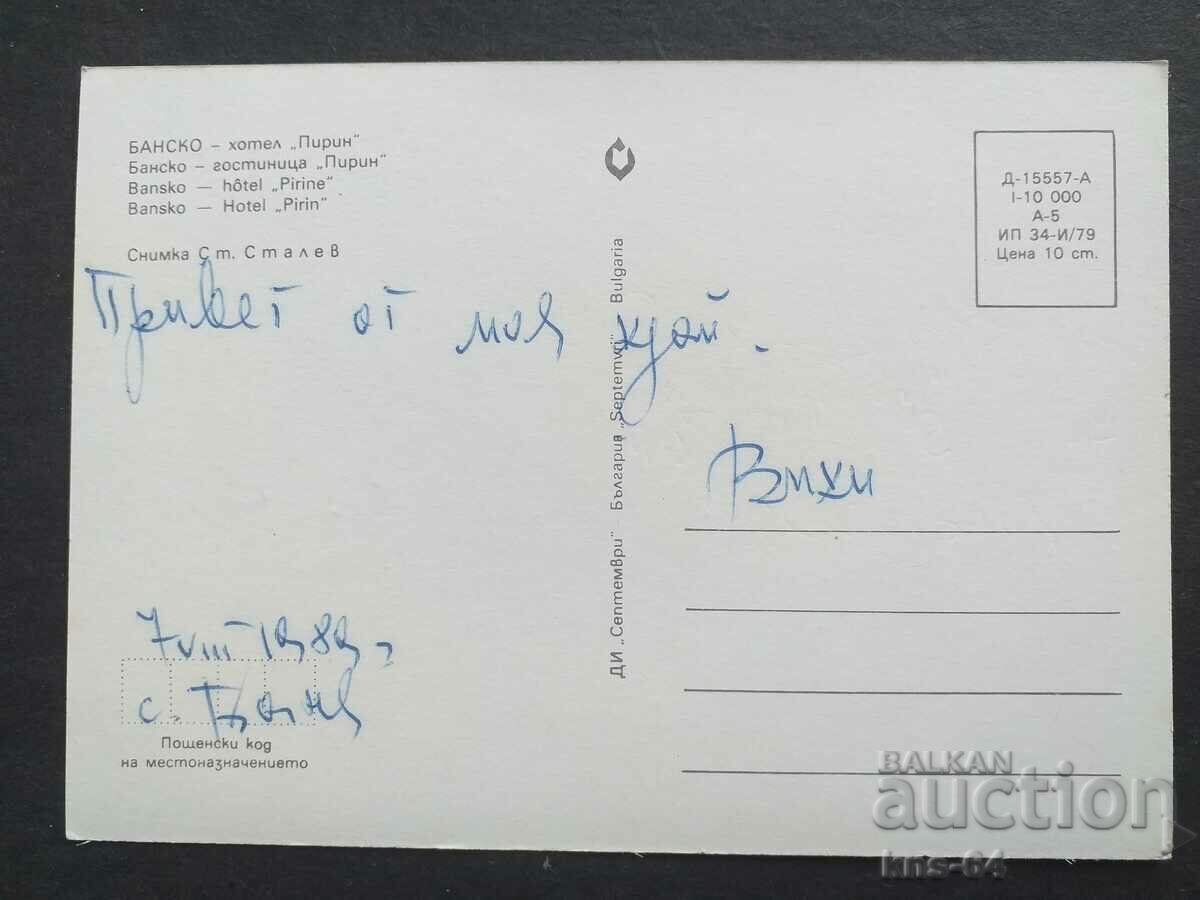 БАНСКО – хотел „Пирин“
Банско – гостиница „Пирин“
Bansko — hôtel „Pirine“
Bansko — Hotel „Pirin“
Снимка Ст. Сталев
Привет от моя край.
Вихи
7 VIII 1989,
с. Баня
Пощенски код
на местоназначението
ДИ „Септември“ - България „Septemvri“ Bulgaria
Д-15557-А
I-10 000
А-5
ИП 34-И/79
Цена 10 ст.
BALKAN
auction
kns-64